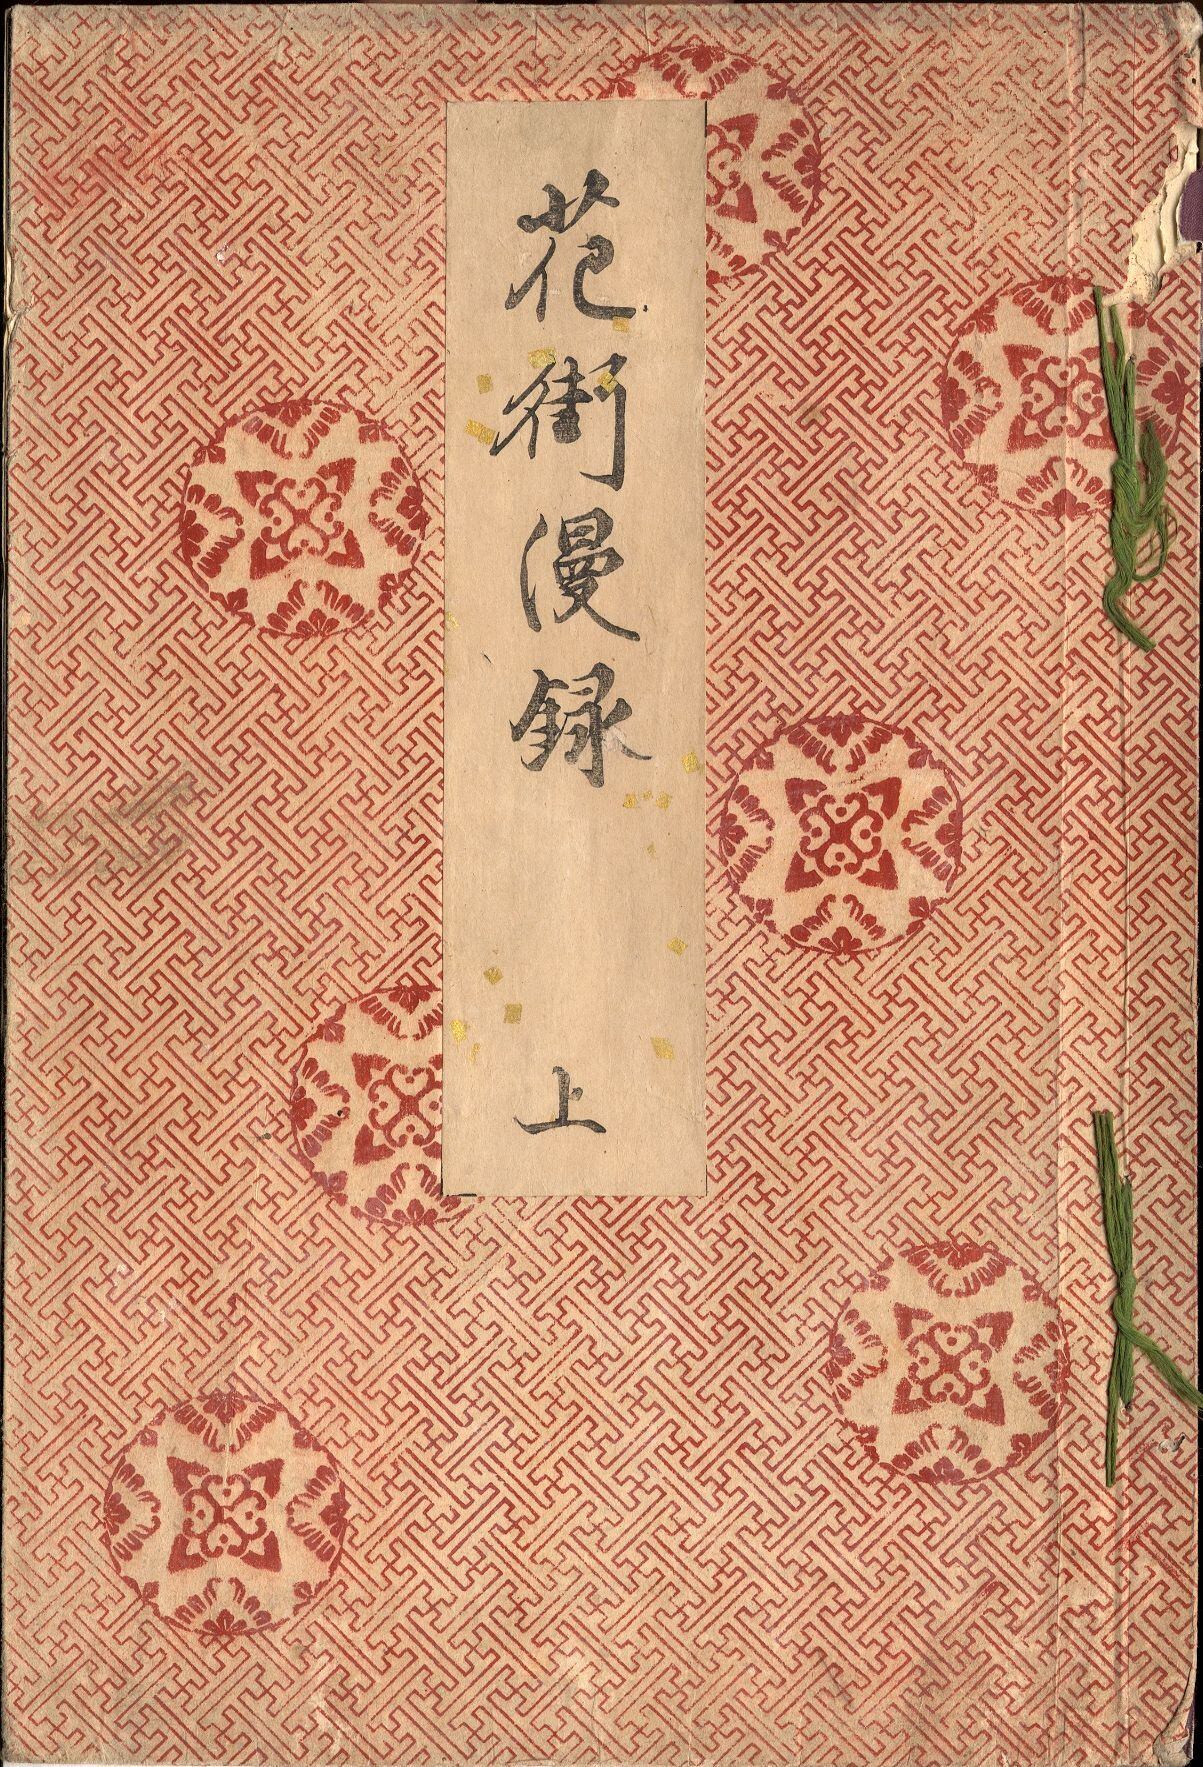 花街漫録
上